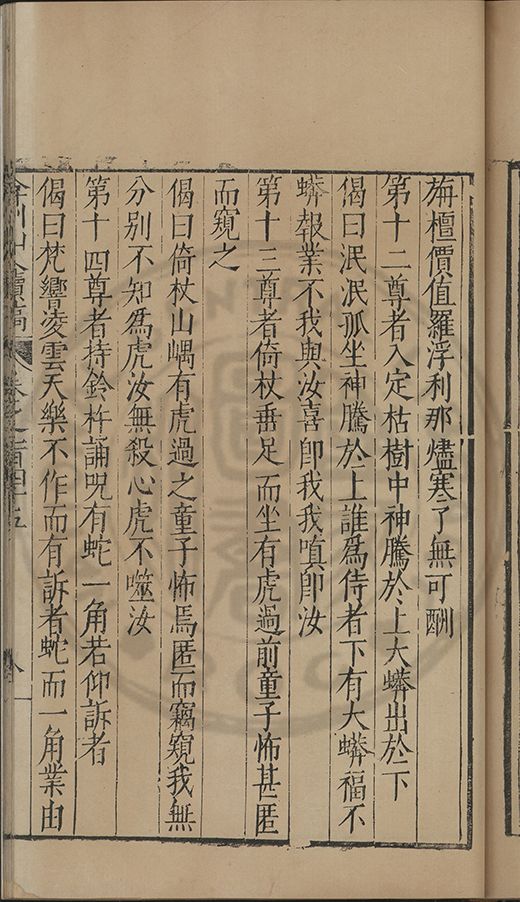 旃檀價值羅浮利那爐寒了無可酬
第十二尊者入定枯樹中神騰於上大蟒出於下
偈曰泯泯孤坐神騰於上誰為侍者下有大蟒福不
蟒報業不我與汝喜卽我我嗔卽汝
第十三尊者倚杖垂足而坐有虎過前童子怖甚匿
而窺之
偈曰倚杖山嵎有虎過之童子怖焉匿而竊窺我無
分别不知為虎汝無殺心虎不噬汝
第十四尊者持鈴杵誦呪有蛇一角若仰訴者
偈曰梵響凌雲天樂不作而有訴者蛇而一角業由
弇州山人續稿 卷之一百四十五 八